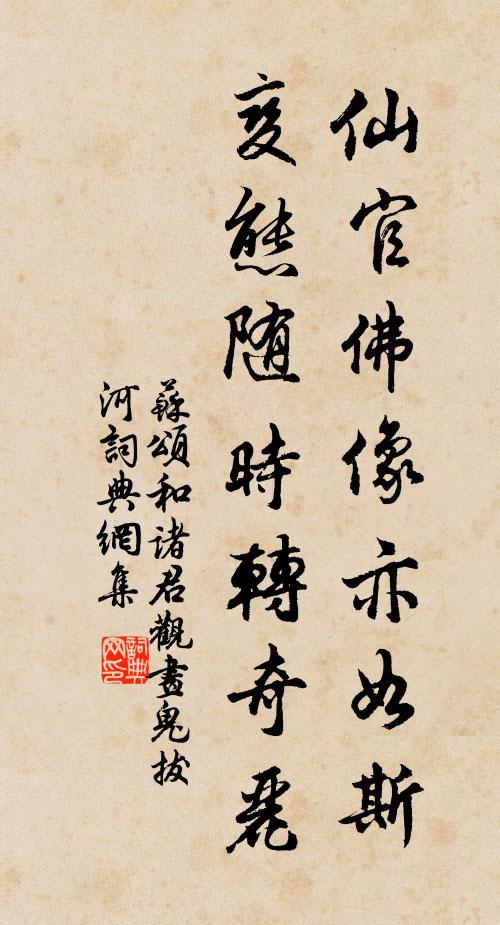 仙官佛像亦如斯
变態随時轉奇麗
蘇頌和諸君觀畫鬼拔
河詞典網集
詞典
网印